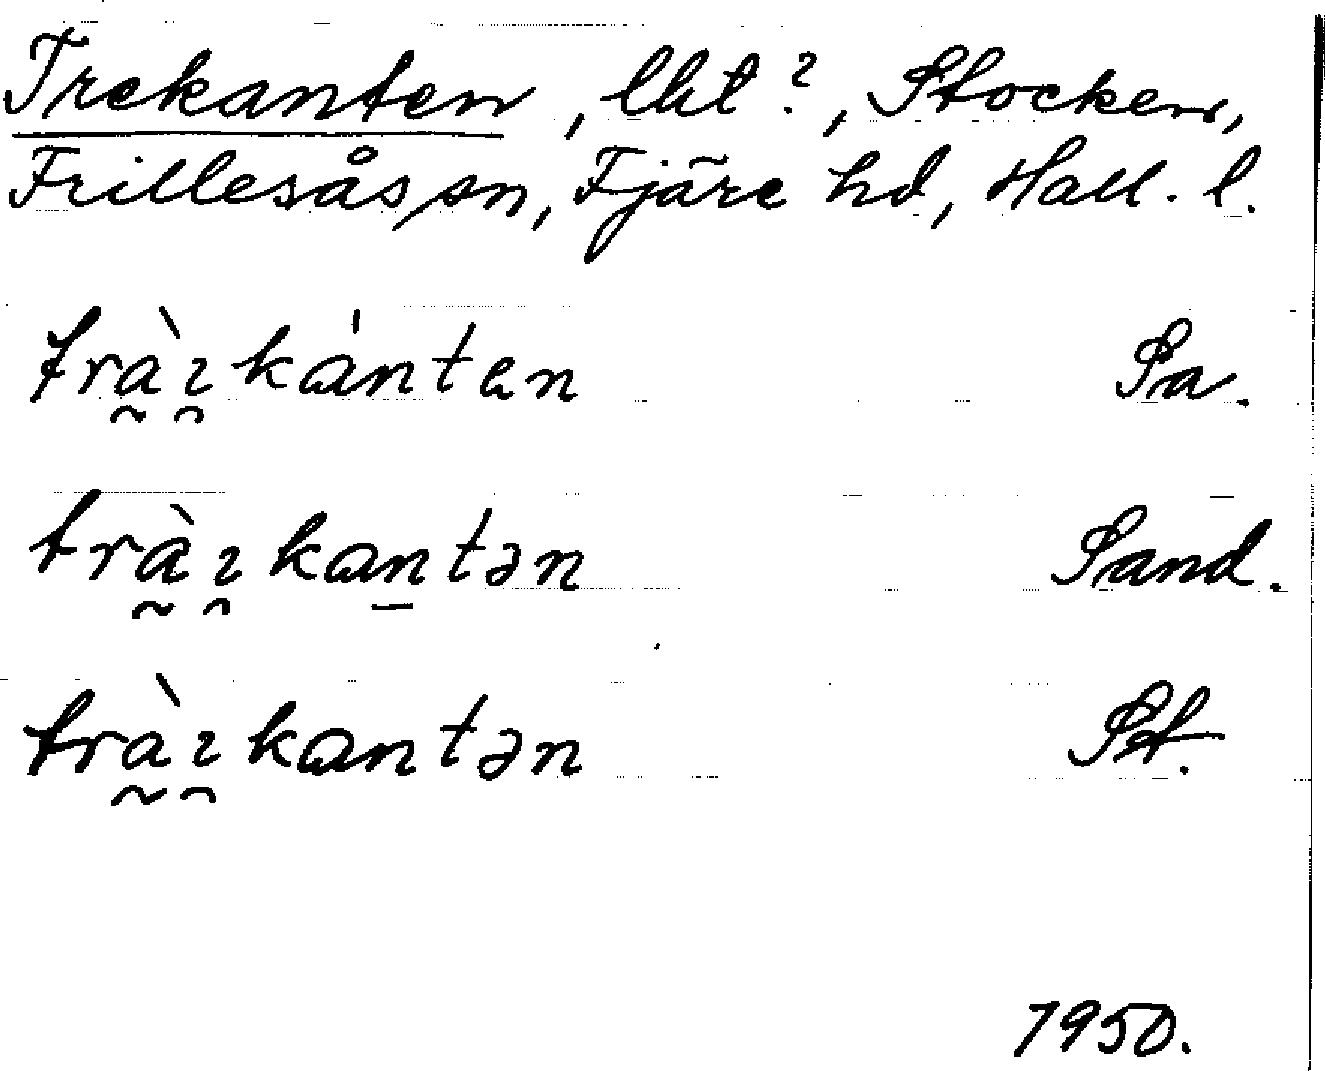 Trekanten, lht?, Stocken,
Frillesås sn, Fjäre hd, Hall. l.
trà̰ɿ̯kántɐn Sa.
trà̰ɿ̯kan̠tən Sand.
trà̰ɿ̯kantən St.
1950.